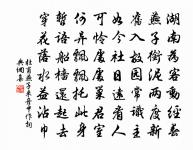 湖南為客動經春
燕子銜泥兩度新
舊入故園常識主
如今社日遠看人
可憐處處巢居室
何異飄飄託此身
暫語船檣還起去
穿花落水益沾巾
杜甫燕子來舟中作